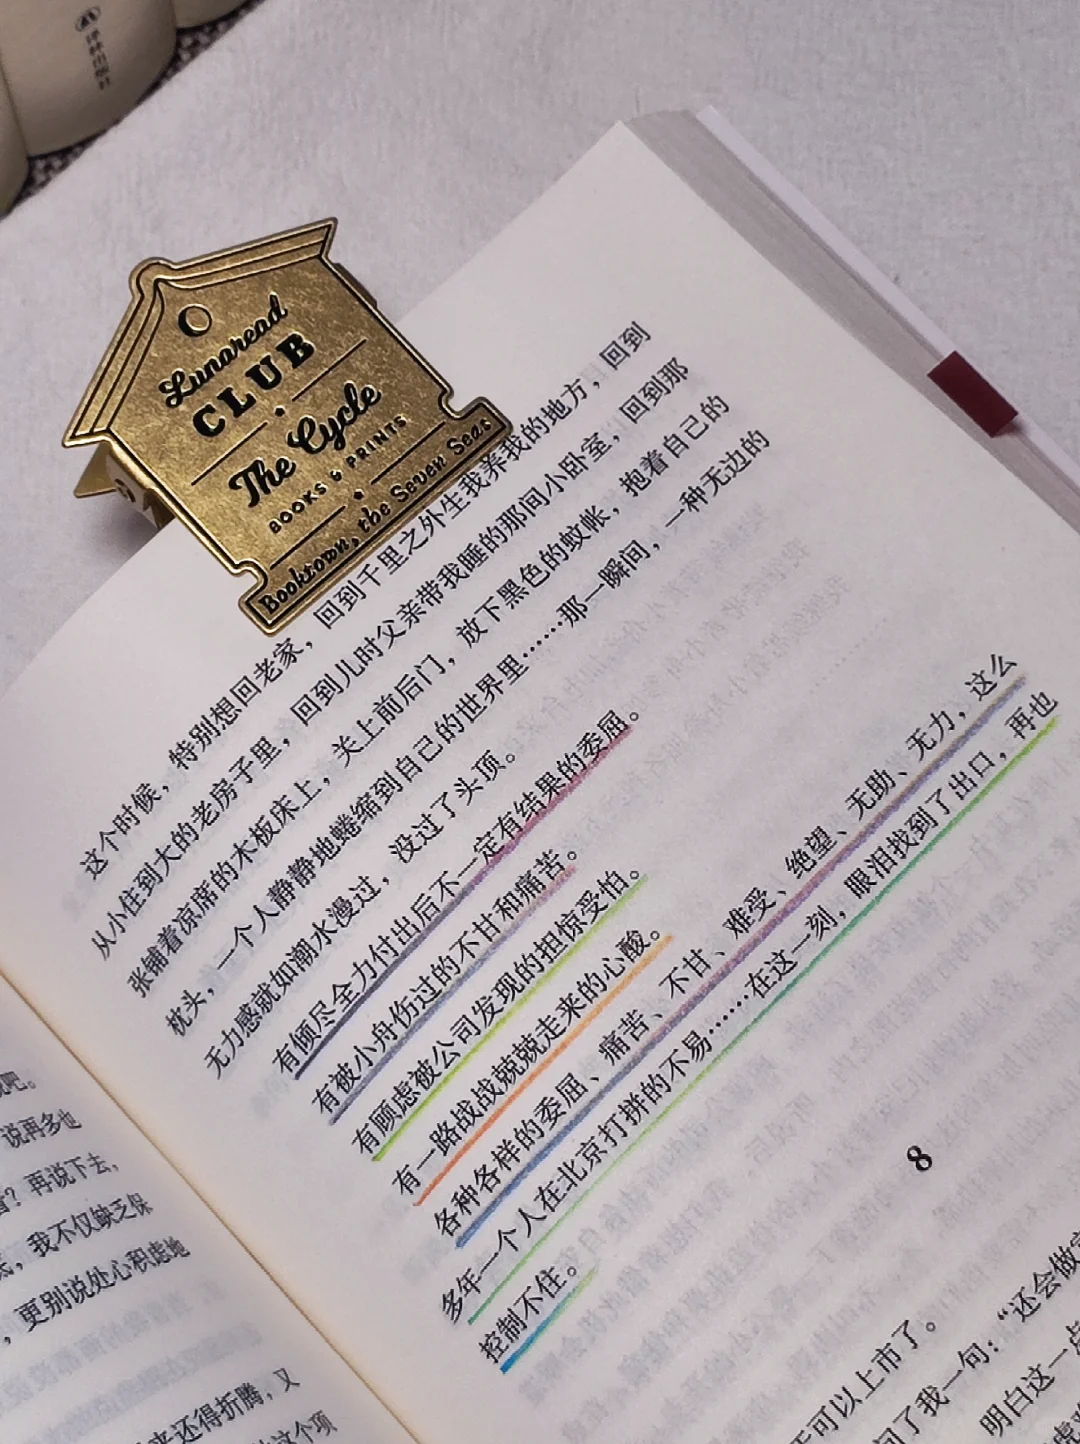 Lunaread
CLUB
The Cycle
BOOKS & PRINTS
Booktown, the Seven Seas
这个时候，特别想回老家，回到千里之外生我养我的地方，回到
从小住到大的老房子里，回到儿时父亲带我睡的那间小卧室，回到那
张铺着凉席的木板床上，关上前后门，放下黑色的蚊帐，抱着自己的
枕头，一个人静静地蜷缩到自己的世界里……那一瞬间，一种无边的
无力感就如潮水漫过，没过了头顶。
有倾尽全力付出后不一定有结果的委屈。
有被小舟伤过的不甘和痛苦。
有顾虑被公司发现的担惊受怕。
有一路战战兢兢走来的心酸。
各种各样的委屈、痛苦、不甘、难受、绝望、无助、无力，这么
多年一个人在北京打拼的不易……在这一刻，眼泪找到了出口，再也
控制不住。
8
可以上市了。
了我一句：“还会做
明白这一点
吧。
说再多也
？再说下去，
，我不仅缺乏保
，更别说处心积虑地
来还得折腾，又
这个项